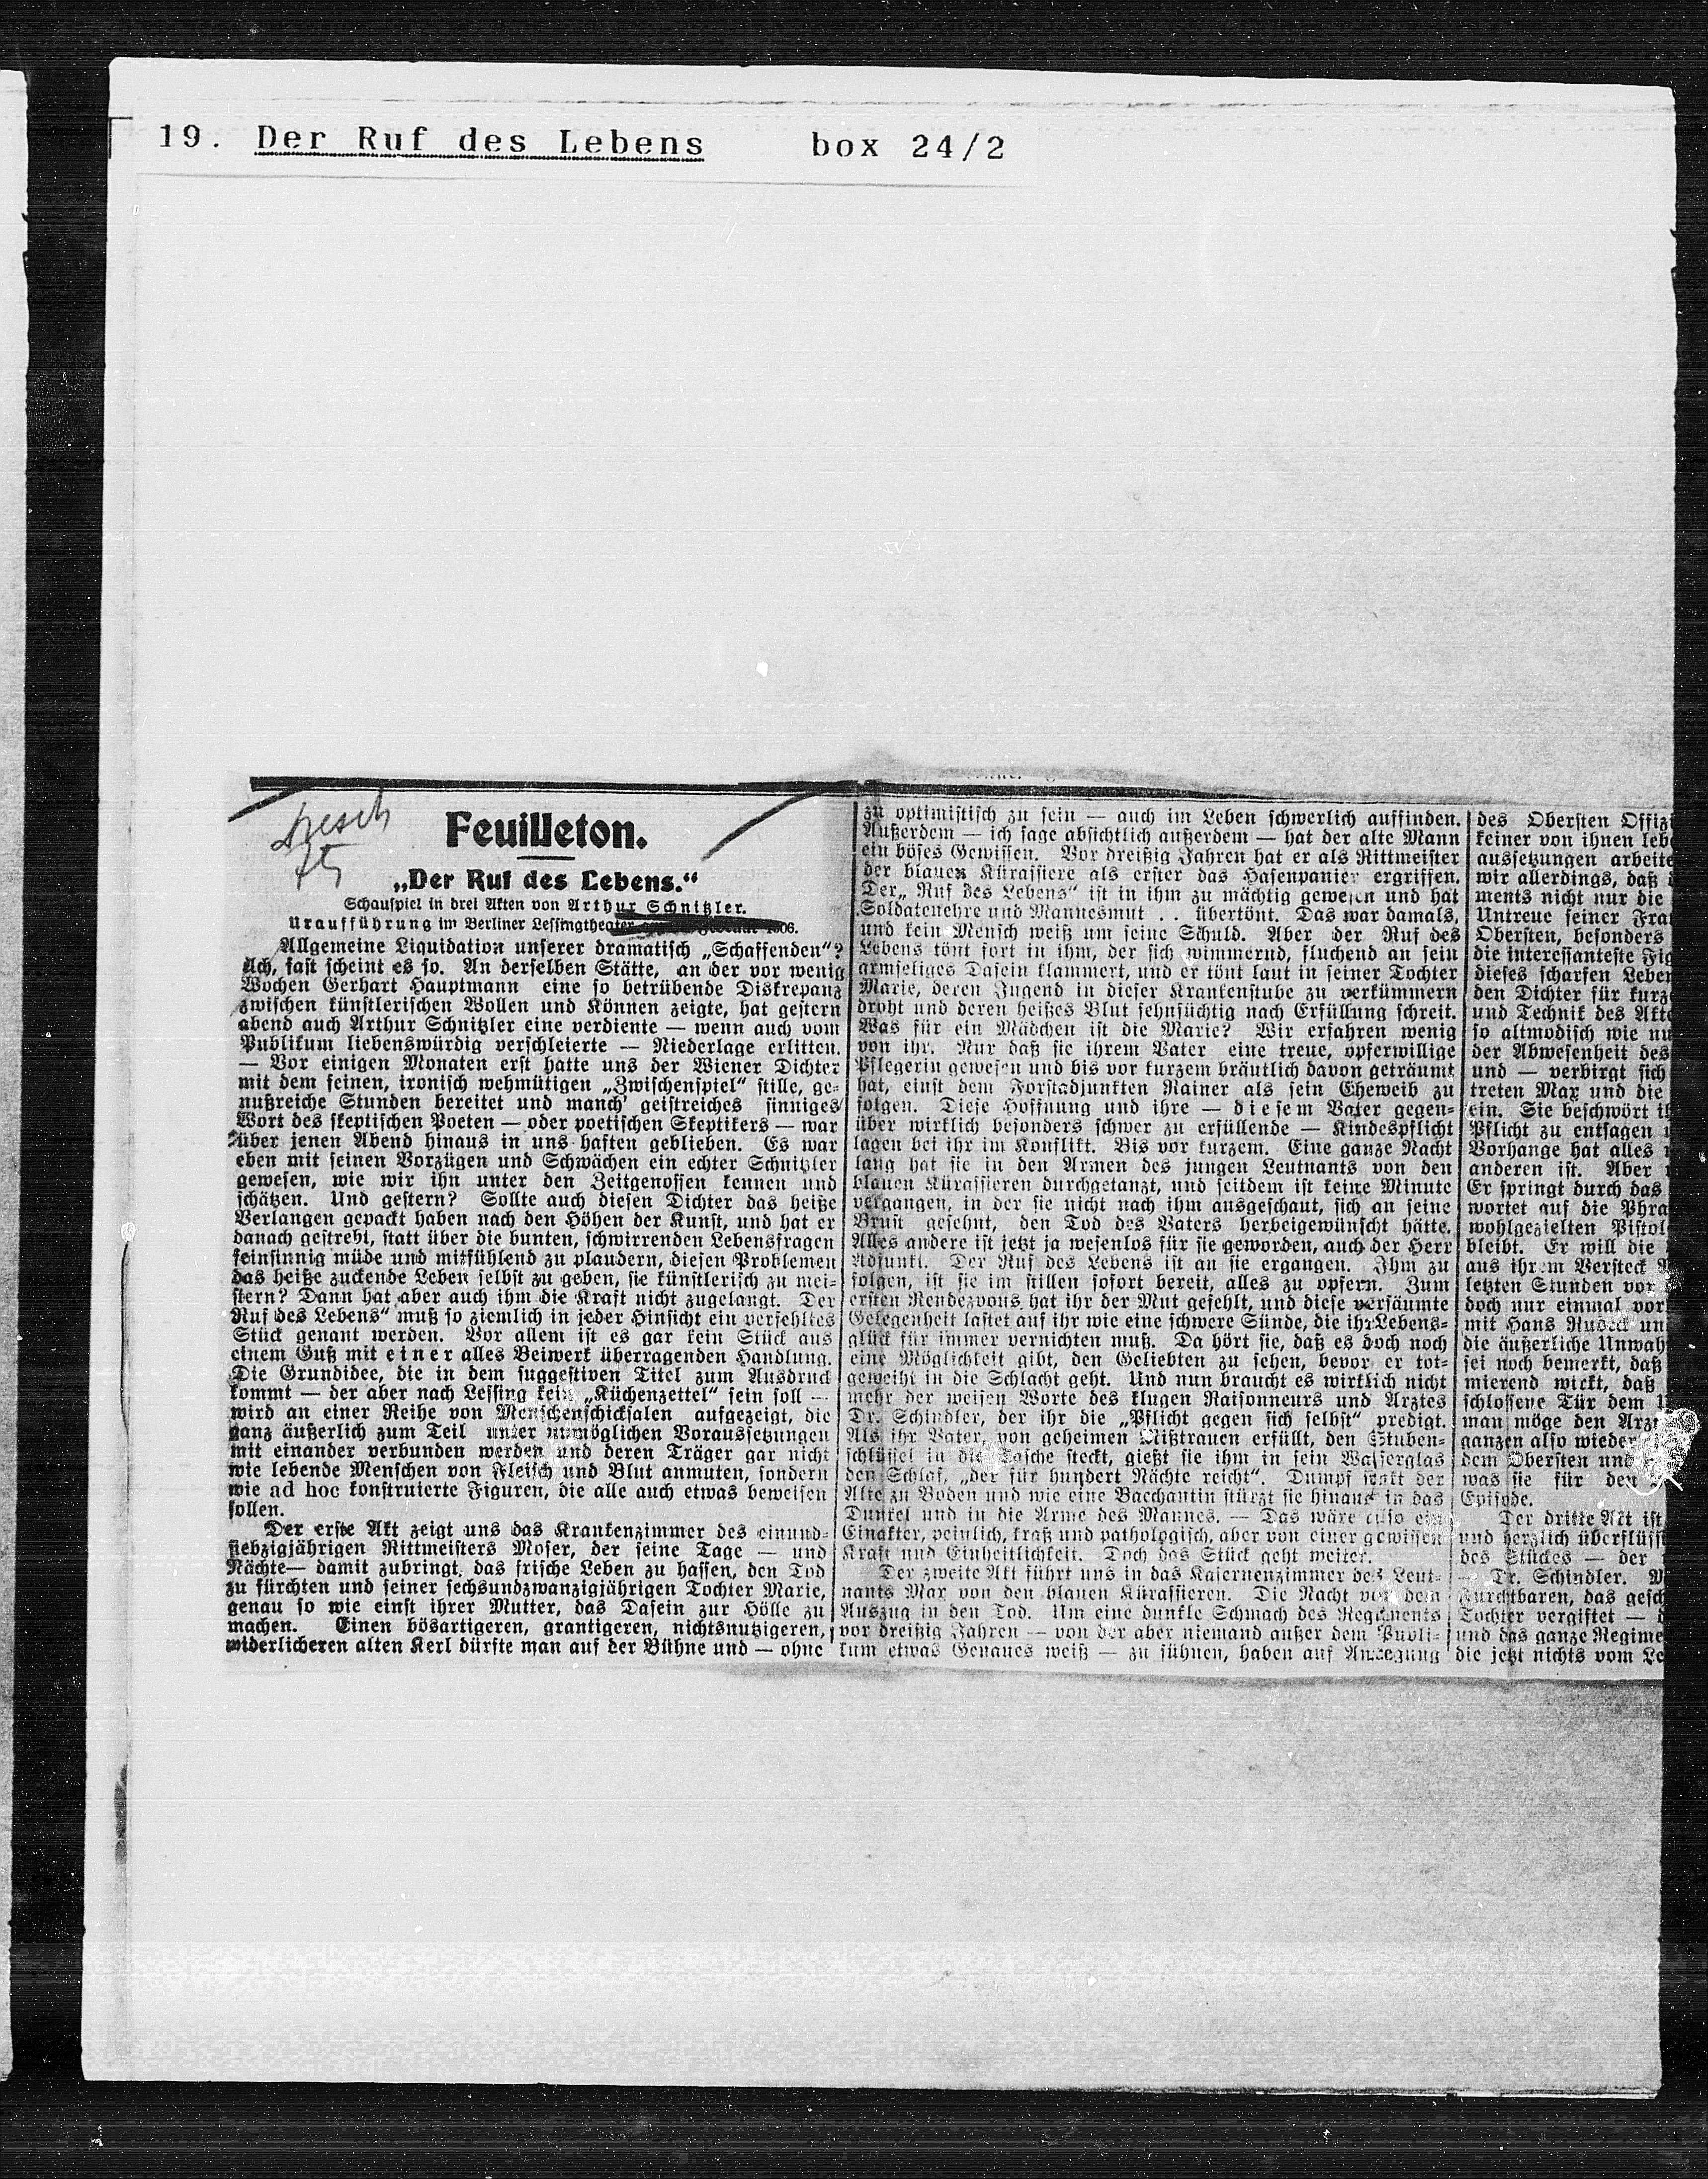 19. Der Ruf des Lebens box 24/2
Feuilleton.
„Der Ruf des Lebens.“
Schauspiel in drei Akten von Arthur Schnitzler.
Uraufführung im Berliner Lessingtheater 1906.
Allgemeine Liquidation unserer dramatisch „Schaffenden“?
Ach, fast scheint es so. An derselben Stätte, an der vor wenig
Wochen Gerhart Hauptmann eine so betrübende Diskrepanz
zwischen künstlerischen Wollen und Können zeigte, hat gestern
abend auch Arthur Schnitzler eine verdiente — wenn auch vom
Publikum liebenswürdig verschleierte — Niederlage erlitten.
— Vor einigen Monaten erst hatte uns der Wiener Dichter
mit dem feinen, ironisch wehmütigen „Zwischenspiel“ stille, ge-
nußreiche Stunden bereitet und manch' geistreiches sinniges
Wort des skeptischen Poeten — oder poetischen Skeptikers — war
über jenen Abend hinaus in uns haften geblieben. Es war
eben mit seinen Vorzügen und Schwächen ein echter Schnitzler
gewesen, wie wir ihn unter den Zeitgenossen kennen und
schätzen. Und gestern? Sollte auch diesen Dichter das heiße
Verlangen gepackt haben nach den Höhen der Kunst, und hat er
danach gestrebt, statt über die bunten, schwirrenden Lebensfragen
feinsinnig müde und mitfühlend zu plaudern, diesen Problemen
das heiße zuckende Leben selbst zu geben, sie künstlerisch zu mei-
stern? Dann hat aber auch ihm die Kraft nicht zugelangt. Der
Ruf des Lebens“ muß so ziemlich in jeder Hinsicht ein verfehltes
Stück genant werden. Vor allem ist es gar kein Stück aus
einem Guß mit einer alles Beiwerk überragenden Handlung.
Die Grundidee, die in dem suggestiven Titel zum Ausdruck
kommt — der aber nach Lessing kein „Küchenzettel“ sein soll —
wird an einer Reihe von Menschenschicksalen aufgezeigt, die
ganz äußerlich zum Teil unter unmöglichen Voraussetzungen
mit einander verbunden werden und deren Träger gar nicht
wie lebende Menschen von Fleisch und Blut anmuten, sondern
wie ad hoc konstruierte Figuren, die alle auch etwas beweisen
sollen.
Der erste Akt zeigt uns das Krankenzimmer des einund-
siebzigjährigen Rittmeisters Moser, der seine Tage — und
Nächte— damit zubringt, das frische Leben zu hassen, den Tod
zu fürchten und seiner sechsundzwanzigjährigen Tochter Marie,
genau so wie einst ihrer Mutter, das Dasein zur Hölle zu
machen. Einen bösartigeren, grantigeren, nichtsnutzigeren,
widerlicheren alten Kerl dürfte man auf der Bühne und — ohne
zu optimistisch zu sein — auch im Leben schwerlich auffinden.
Außerdem — ich sage absichtlich außerdem — hat der alte Mann
ein böses Gewissen. Vor dreißig Jahren hat er als Rittmeister
der blauen Kürassiere als erster das Hasenpanier ergriffen.
Der„ Ruf des Lebens“ ist in ihm zu mächtig gewesen und hat
Soldatenehre und Mannesmut . . übertönt. Das war damals,
und kein Mensch weiß um seine Schuld. Aber der Ruf des
Lebens tönt fort in ihm, der sich wimmernd, fluchend an sein
armseliges Dasein klammert, und er tönt laut in seiner Tochter
Marie, deren Jugend in dieser Krankenstube zu verkümmern
droht und deren heißes Blut sehnsüchtig nach Erfüllung schreit.
Was für ein Mädchen ist die Marie? Wir erfahren wenig
von ihr. Nur daß sie ihrem Vater eine treue, opferwillige
Pflegerin gewesen und bis vor kurzem bräutlich davon geträumt
hat, einst dem Forstadjunkten Rainer als sein Eheweib zu
folgen. Diese Hoffnung und ihre — diesem Vater gegen-
über wirklich besonders schwer zu erfüllende — Kindespflicht
lagen bei ihr im Konflikt. Bis vor kurzem. Eine ganze Nacht
lang hat sie in den Armen des jungen Leutnants von den
blauen Kürassieren durchgetanzt, und seitdem ist keine Minute
vergangen, in der sie nicht nach ihm ausgeschaut, sich an seine
Brust gesehnt, den Tod des Vaters herbeigewünscht hätte.
Alles andere ist jetzt ja wesenlos für sie geworden, auch der Herr
Adjunkt. Der Ruf des Lebens ist an sie ergangen. Ihm zu
folgen, ist sie im stillen sofort bereit, alles zu opfern. Zum
ersten Rendezvous hat ihr der Mut gefehlt, und diese versäumte
Gelegenheit lastet auf ihr wie eine schwere Sünde, die ihr Lebens-
glück für immer vernichten muß. Da hört sie, daß es doch noch
eine Möglichkeit gibt, den Geliebten zu sehen, bevor er tot-
geweiht in die Schlacht geht. Und nun braucht es wirklich nicht
mehr der weisen Worte des klugen Raisonneurs und Arztes
Dr. Schindler, der ihr die „Pflicht gegen sich selbst“ predigt.
Als ihr Vater, von geheimen Mißtrauen erfüllt, den Stuben-
schlüssel in die Tasche steckt, gießt sie ihm in sein Wasserglas
den Schlaf, „der für hundert Nächte reicht“. Dumpf sinkt der
Alte zu Boden und wie eine Bacchantin stürzt sie hinaus in das
Dunkel und in die Arme des Mannes. — Das wäre also ein
Einakter, peinlich, kraß und pathologisch, aber von einer gewissen
Kraft und Einheitlichkeit. Doch das Stück geht weiter.
Der zweite Akt führt uns in das Kasernenzimmer des Leut-
nants Max von den blauen Kürassieren. Die Nacht vor dem
Auszug in den Tod. Um eine dunkle Schmach des Regiments
vor dreißig Jahren — von der aber niemand außer dem Publi-
kum etwas Genaues weiß — zu sühnen, haben auf Anregung
des Obersten Offizi
keiner von ihnen leb
aussetzungen arbeite
wir allerdings, daß
ments nicht nur die
Untreue seiner Fra
Obersten, besonders
die interessanteste Fig
dieses scharfen Leben
den Dichter für kurz
und Technik des Akte
so altmodisch wie nu
der Abwesenheit des
und — verbirgt sich
treten Max und die
ein. Sie beschwört ih
Pflicht zu entsagen
Vorhange hat alles
anderen ist. Aber
Er springt durch das
wortet auf die Phra
wohlgezielten Pistol
bleibt. Er will die
aus ihrem Versteck
letzten Stunden vor
doch nur einmal vor
mit Hans Rudeck un
die äußerliche Unwah
sei noch bemerkt, daß
mierend wirkt, daß
schlossene Tür dem
man möge den Arzt
ganzen also wieder
dem Obersten und
was sie für den
Episode.
Der dritte Akt ist
und herzlich überflüssi
des Stückes — der
— Dr. Schindler.
Furchtbaren, das gesch
Tochter vergiftet —
und das ganze Regime
die jetzt nichts vom Le